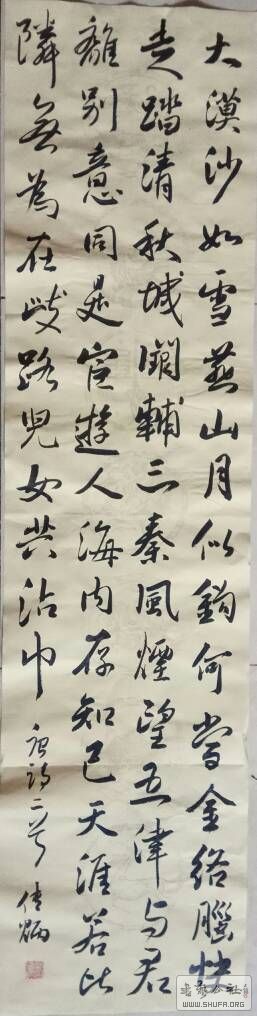 大漠沙如雪燕山月似鈎何當金絡腦快
走踏清秋城闕輔三秦風煙望五津与君
離別意同是宦遊人海内存知己天涯若比
隣無為在歧路兒女共沾巾
唐詩二首
WWW.SHUFA.ORG